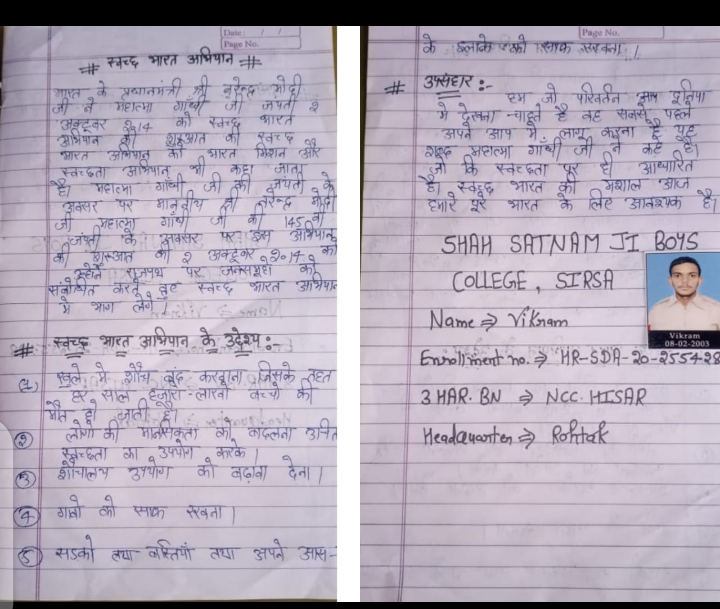 Date: / /
Page No.
# स्वच्छ भारत अभियान #
भारत के प्रधानमंत्री श्री नरेन्द्र मोदी
जी ने महात्मा गाँधी जी जयंती २
अक्टूबर २०14 को स्वच्छ भारत
अभियान की शुरूआत की स्वच्छ
भारत अभियान को भारत मिशन और
स्वच्छता अभियान भी कहा जाता
है। महात्मा गाँधी जी की जयंती के
अवसर पर माननीय श्री नरेन्द्र मोदी
जी महात्मा गाँधी जी की 145 वी
जयंती के अवसर पर इस अभियान
की शुरूआत की २ अक्टूबर २०14 को
राजपथ पर जनसमूहों को
संबोधित करते हुए स्वच्छ भारत अभियान
मे भाग लेंगे
# स्वच्छ भारत अभियान के उद्देश्य :-
खुले मे शौच बंद करवाना जिसके तहत
हर साल हजारो-लाखो बच्चो की
मौत हो जाती है।
② लोगो की मानसिकता को बादलना उचित
स्वच्छता का उपयोग करके।
③ शौचालय उपयोग को बढ़ावा देना।
④ गावो को साफ रखना।
⑤ सडको तथा बस्तियाँ तथा अपने आस-
Page No.
के इलाके को साफ रखना।
# उपसंहार :-
हम जो परिवर्तन आप दुनिया
मे देखना चाहते है वह सबसे पहले
अपने आप मे लागू करना है यह
शब्द महात्मा गाँधी जी ने कहे है।
जो कि स्वच्छता पर ही आधारित
है। स्वच्छ भारत की मशाल आज
हमारे पूरे भारत के लिए आवश्यक है।
SHAH SATNAM JI BOYS
COLLEGE, SIRSA
Name ⇒ Vikram
Vikram
08-02-2003
Enrollment no. ⇒ HR-SDA-20-255428
3 HAR. BN ⇒ NCC. HISAR
Headquarter ⇒ Rohtak